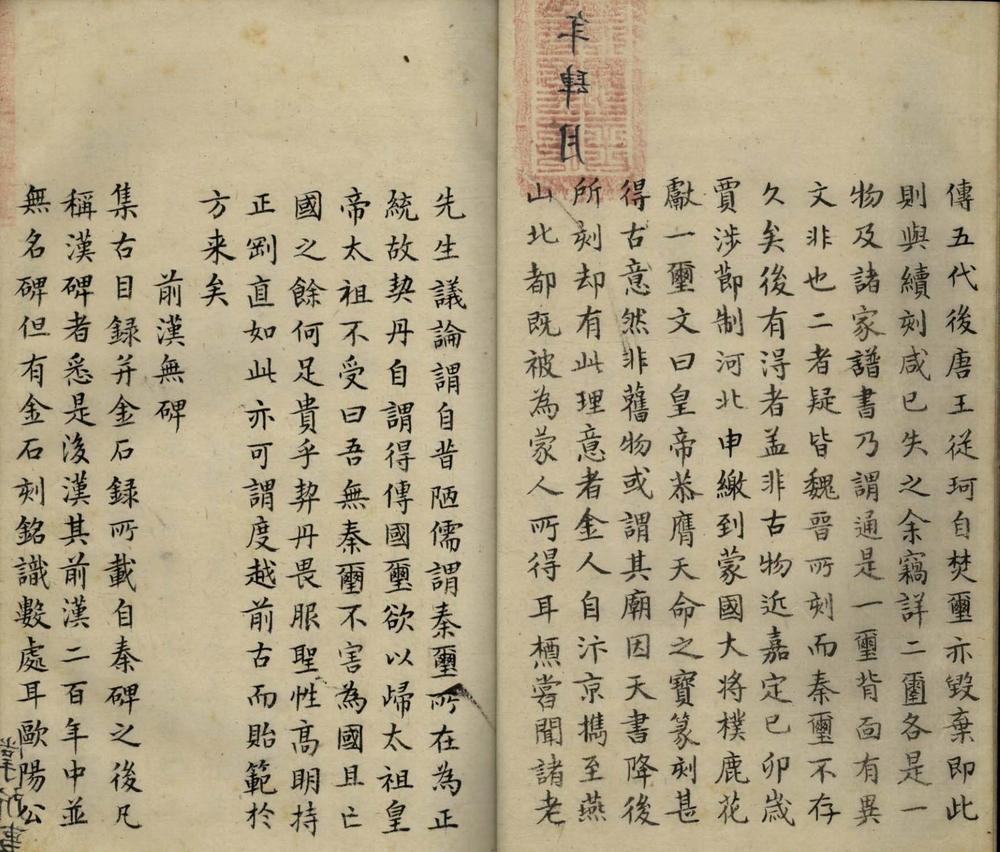 傳五代後唐王従珂自焚璽亦毀棄即此
則與續刻咸已失之余竊詳二璽各是一
物及諸家譜書乃謂通是一璽背面有異
文非也二者疑皆魏晉所刻而秦璽不存
久矣後有淂者盖非古物近嘉定已卯歲
賈涉節制河北申繳到蒙國大将樸鹿花
獻一璽文曰皇帝恭膺天命之寶篆刻甚
得古意然非舊物或謂其廟因天書降後
所刻却有此理意者金人自汴京携至燕
山北都既被為蒙人所得耳槱嘗聞諸老
先生議論謂自昔陋儒謂秦璽所在為正
統故契丹自謂得傳國璽欲以歸太祖皇
帝太祖不受曰吾無秦璽不害為國且亡
國之餘何足貴乎契丹畏服聖性高明持
正剛直如此亦可謂度越前古而貽範於
方来矣
前漢無碑
集古目録并金石録所載自秦碑之後凡
稱漢碑者悉是後漢其前漢二百年中並
無名碑但有金石刻銘識數處耳歐陽公
年肆月